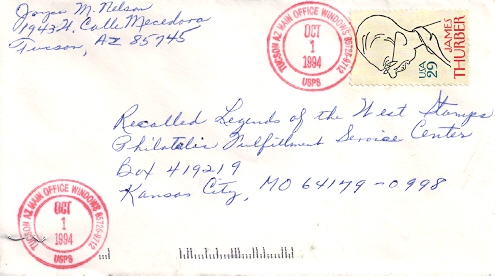 Joyce M. Nelson
1943 W. Calle Mecedora
Tucson, AZ 85745
TUCSON AZ MAIN OFFICE WINDOWS 85726-9712
OCT
1
1994
USPS
USA
29
JAMES
THURBER
Recalled Legends of the West Stamps
Philatelic Fulfillment Service Center
Box 419219
Kansas City, MO 64179-0998
TUCSON AZ MAIN OFFICE WINDOWS 85726-9712
OCT
1
1994
USPS